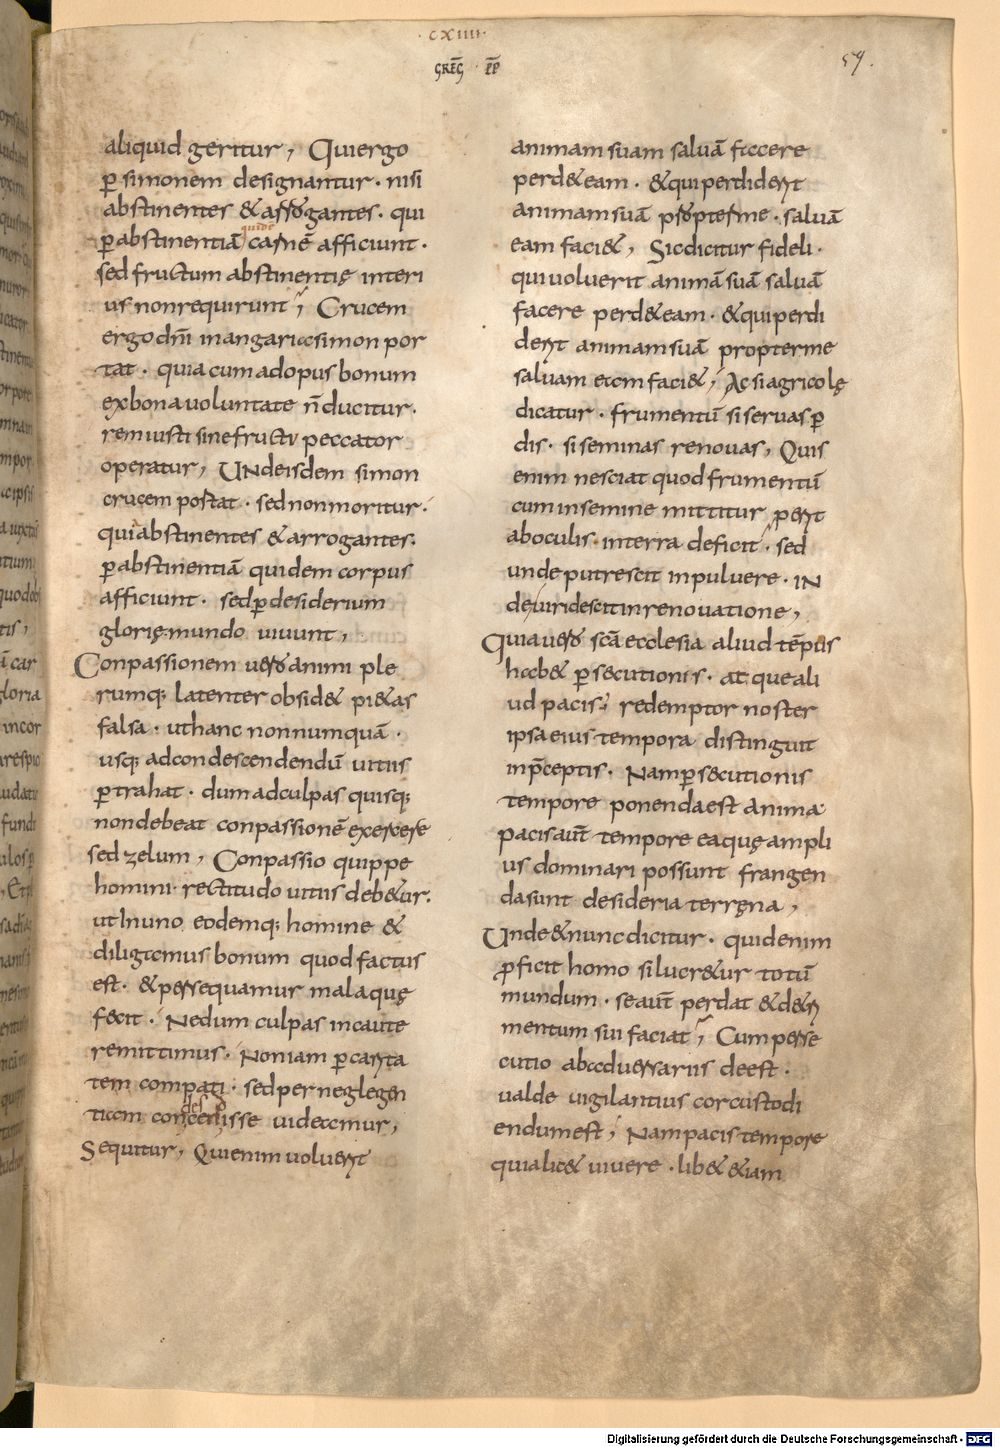 · cxiiii·
GREG · PP
59.
aliquid geritur, Qui ergo
p̄ simonem designantur · nisi
abstinentes & arrogantes · qui
p̄ abstinentiā carnē afficiunt ·
quidē
sed fructum abstinentię interi
us non requirunt; Crucem
ergo dn̄i in angaria simon por
tat · quia cum ad opus bonum
ex bona uoluntate n̄ ducitur ·
rem iusti sine fructu peccator
operatur, Unde isdem simon
crucem postat · sed non moritur ·
qui abstinentes & arrogantes ·
p̄ abstinentiā quidem corpus
afficiunt · sed p̄ desiderium
glorię mundo uiuunt,
Conpassionem uero animi ple
rumq; latenter obsid& pi&as
falsa · ut hanc non numquā ·
usq; ad condescendendū uitiis
p̄trahat · dum ad culpas quisq;
non debeat conpassionē exercere
sed zelum, Conpassio quippe
homini · rectitudo uitiis deb&ur ·
ut In uno eodemq; homine &
diligamus bonum quod factus
est · & persequamur mala quę
fecit · Ne dum culpas incaute
remittimus · Non iam p̄ carita
tem compati · sed per neglegen
des
tiam concedisse uideamur,
Sequitur, Qui enim uoluerit
animam suam saluā facere
perd& eam · & qui perdiderit
animam suā propter me · saluā
eam faci&, Sic dicitur fideli ·
qui uoluerit animā suā saluā
facere perd& eam · & qui perdi
derit animam suā propter me
saluam eam faci&; Ac si agricolę
dicatur · frumentū si seruas p̄
dis · si seminas renouas, Quis
enim nesciat quod frumentū
cum in semine mittitur perit
ab oculis · in terra deficit · sed
unde putrescit in puluere · IN
de uirdescit in renouatione,
Quia uero sc̄a ecclesia aliud tēpus
hab& p̄secutionis · atque ali
ud pacis; redemptor noster
ipsa eius tempora distinguit
in p̄ceptis · Nam p̄secutionis
tempore ponenda est anima ·
pacis aut̄ tempore ea quę ampli
us dominari possunt frangen
da sunt desideria terręna,
Unde & nunc dicitur · quid enim
p̄ficit homo si lucr&ur totū
mundum · se aut̄ perdat & d&ri
mentum sui faciat; Cum perse
cutio ab aduersariis deest ·
ualde uigilantius cor custodi
endum est; Nam pacis tempore
quia lic& uiuere · lib& &iam
Digitalisierung gefördert durch die Deutsche Forschungsgemeinschaft - DFG